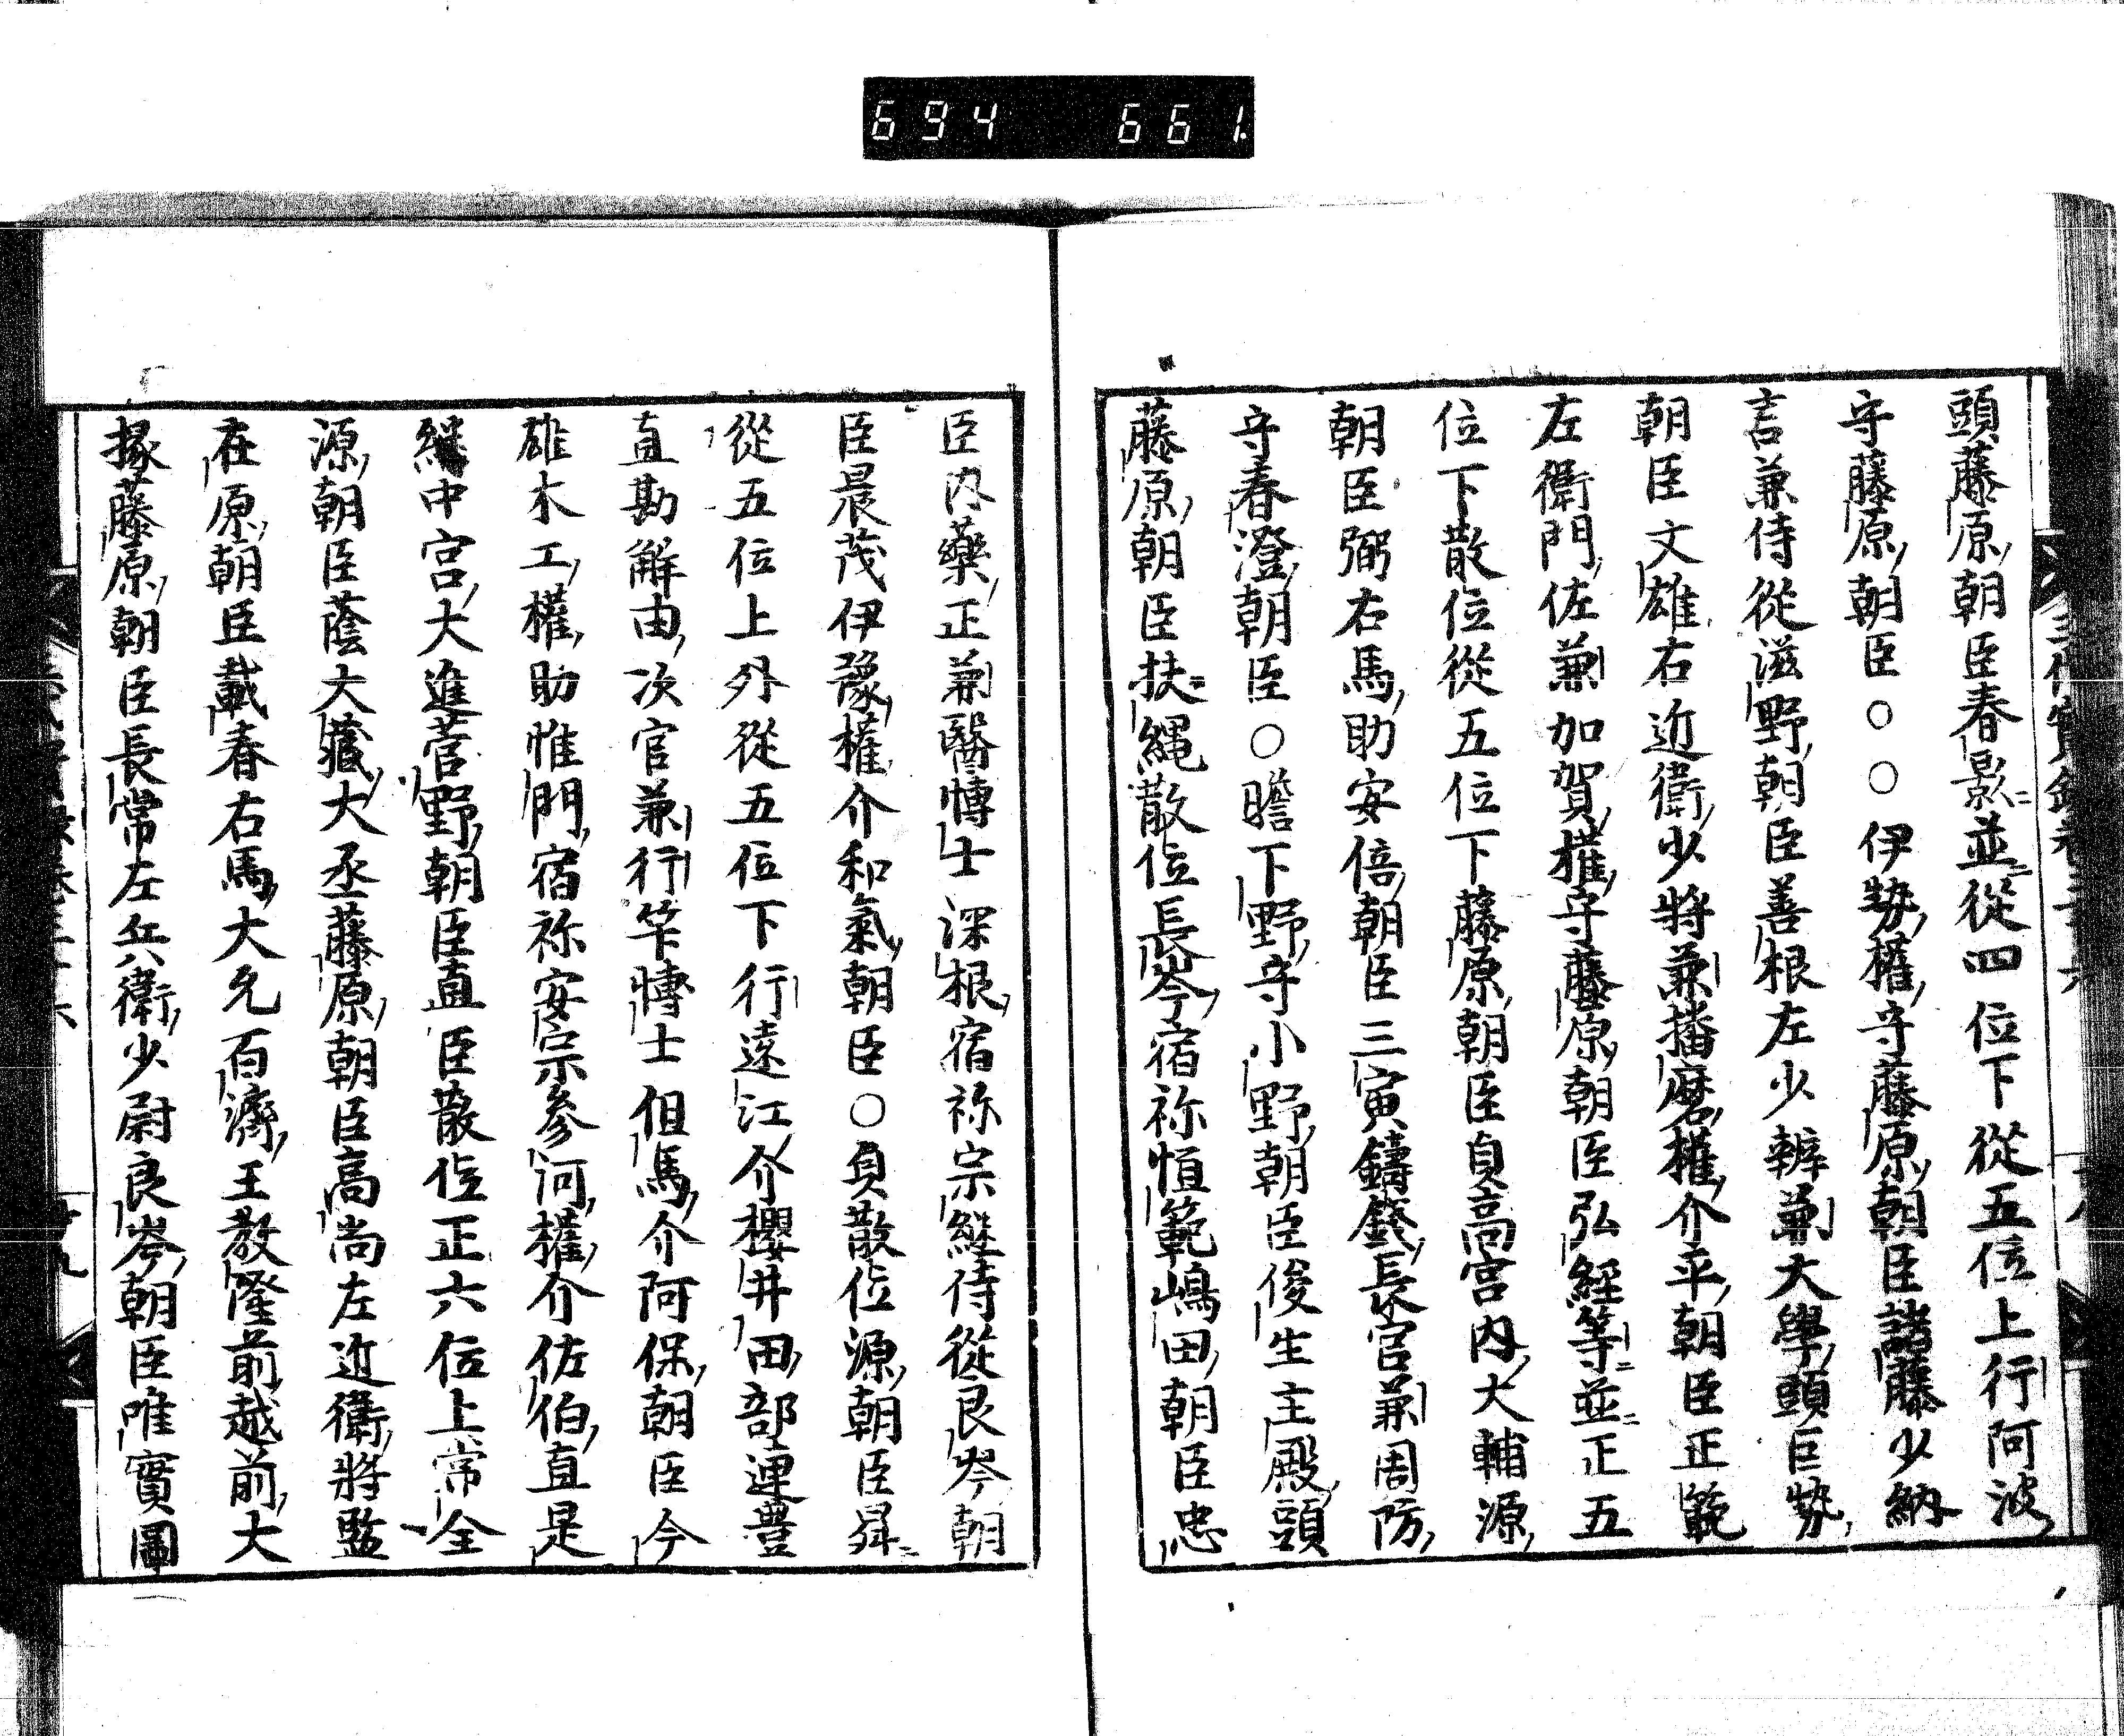 694 661.
頭藤原朝臣春影並從四位下從五位上行阿波
守藤原朝臣○○伊勢權守藤原朝臣諸藤少納
言兼侍從滋野朝臣善根左少辨兼大學頭巨勢
朝臣文雄右近衛少將兼播磨權介平朝臣正範
左衛門佐兼加賀權守藤原朝臣弘經等並正五
位下散位從五位下藤原朝臣貞高宮内大輔源
朝臣弼右馬助安倍朝臣三寅鑄錢長官兼周防
守春澄朝臣○瞻下野守小野朝臣俊生主殿頭
藤原朝臣扶繩散位長岑宿祢恒範嶋田朝臣忠
臣内藥正兼醫博士深根宿祢宗継侍從良岑朝
臣晨茂伊豫權介和氣朝臣○負散位源朝臣昇
從五位上外從五位下行遠江介櫻井田部連豊
直勘解由次官兼行筭博士但馬介阿保朝臣今
雄木工權助惟門宿祢安宗參河權介佐伯直是
継中宮大進菅野朝臣直臣散位正六位上常全
源朝臣蔭大藏大丞藤原朝臣高尚左近衛將監
在原朝臣載春右馬大允百濟王教隆前越前大
掾藤原朝臣長常左兵衛少尉良岑朝臣唯實圖